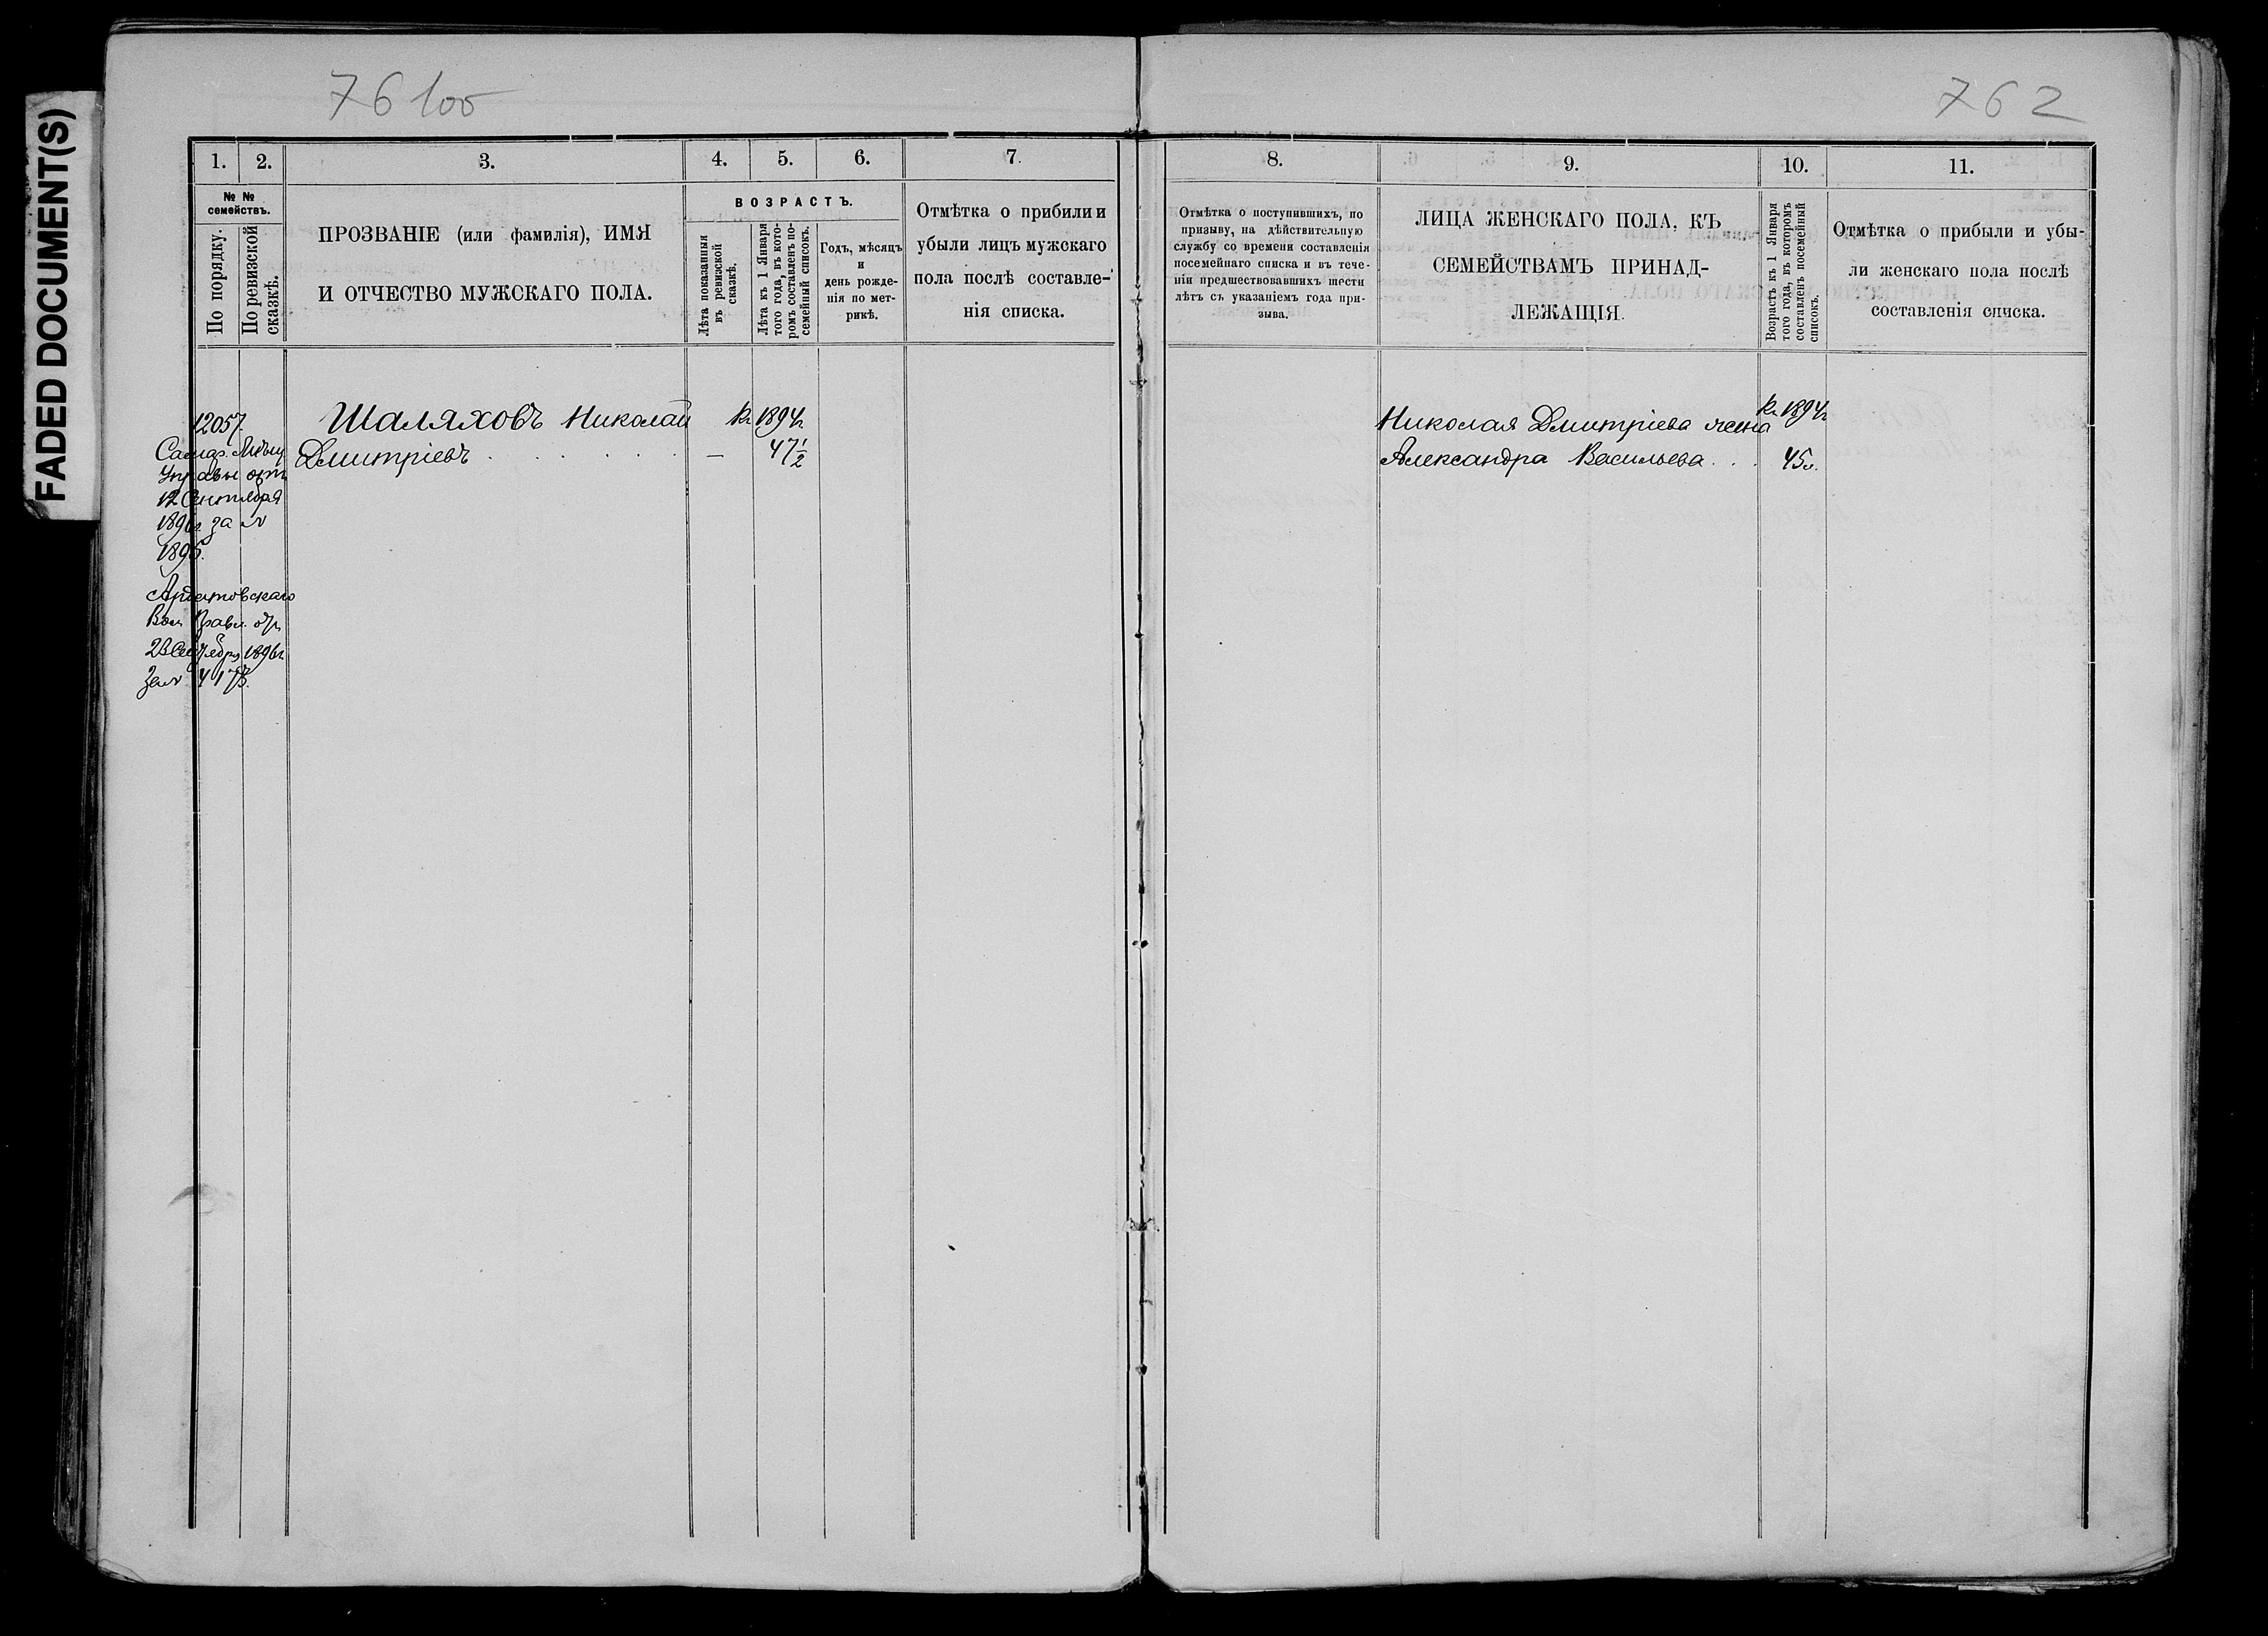 FADED DOCUMENT(S)
76 100
762
1. 2. 3. 4. 5. 6. 7.
№ № семействъ.
По порядку.
По ревизской сказкѣ.
ПРОЗВАНІЕ (или фамилія), ИМЯ
И ОТЧЕСТВО МУЖСКАГО ПОЛА.
ВОЗРАСТЪ.
Лѣта показанныя
въ ревизской
сказкѣ.
Лѣта къ 1 Января
того года, въ кото-
ромъ составленъ по-
семейный списокъ.
Годъ, мѣсяцъ
и
день рожде-
нія по мет-
рикѣ.
Отмѣтка о прибили и
убыли лицъ мужскаго
пола послѣ составле-
нія списка.
12057.
Самар. Мѣщ.
Управы отъ
12 Сентября
1896г. за №
1895.
Ардатовскаго
Вол. Правл. отъ
23 Сентября 1896г.
за № 4173.
Шаляховъ Николай
Дмитріевъ
къ 1894г.
— 47½
8. 9. 10. 11.
Отмѣтка о поступившихъ, по
призыву, на дѣйствительную
службу со времени составленія
посемейнаго списка и въ тече-
ніи предшествовавшихъ шести
лѣтъ съ указаніемъ года при-
зыва.
ЛИЦА ЖЕНСКАГО ПОЛА, КЪ
СЕМЕЙСТВАМЪ ПРИНАД-
ЛЕЖАЩІЯ.
Возрастъ къ 1 Января
того года, въ которомъ
составленъ посемейный
списокъ.
Отмѣтка о прибыли и убы-
ли женскаго пола послѣ
составленія списка.
Николая Дмитріева жена
Александра Васильева
къ 1894г.
45л.